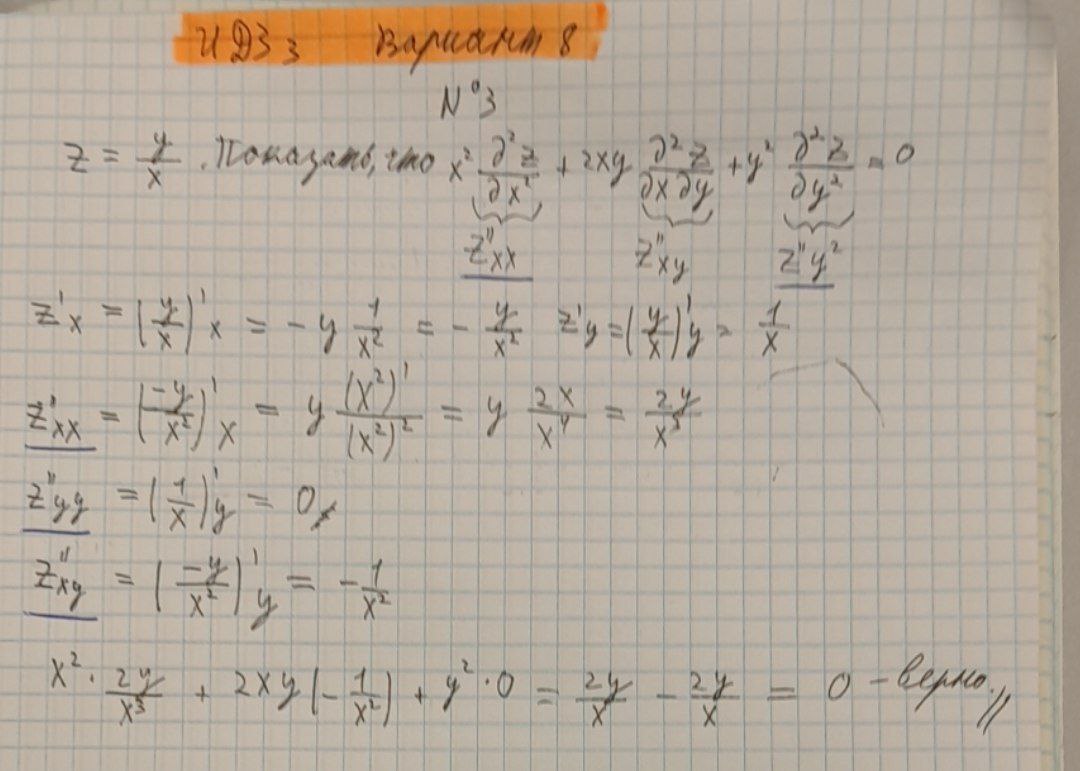 ИДЗ 3 Вариант 8
N°3
z = y/x . Показать, что x² ∂²z/∂x² + 2xy ∂²z/∂x∂y + y² ∂²z/∂y² = 0
z''xx z''xy z''y²
z'x = (y/x)'x = - y 1/x² = - y/x² z'y = (y/x)'y = 1/x
z''xx = (-y/x²)'x = y (x²)'/(x²)² = y 2x/x⁴ = 2y/x³
z''yy = (1/x)'y = 0
z''xy = (-y/x²)'y = - 1/x²
x² · 2y/x³ + 2xy (- 1/x²) + y² · 0 = 2y/x - 2y/x = 0 - верно.//